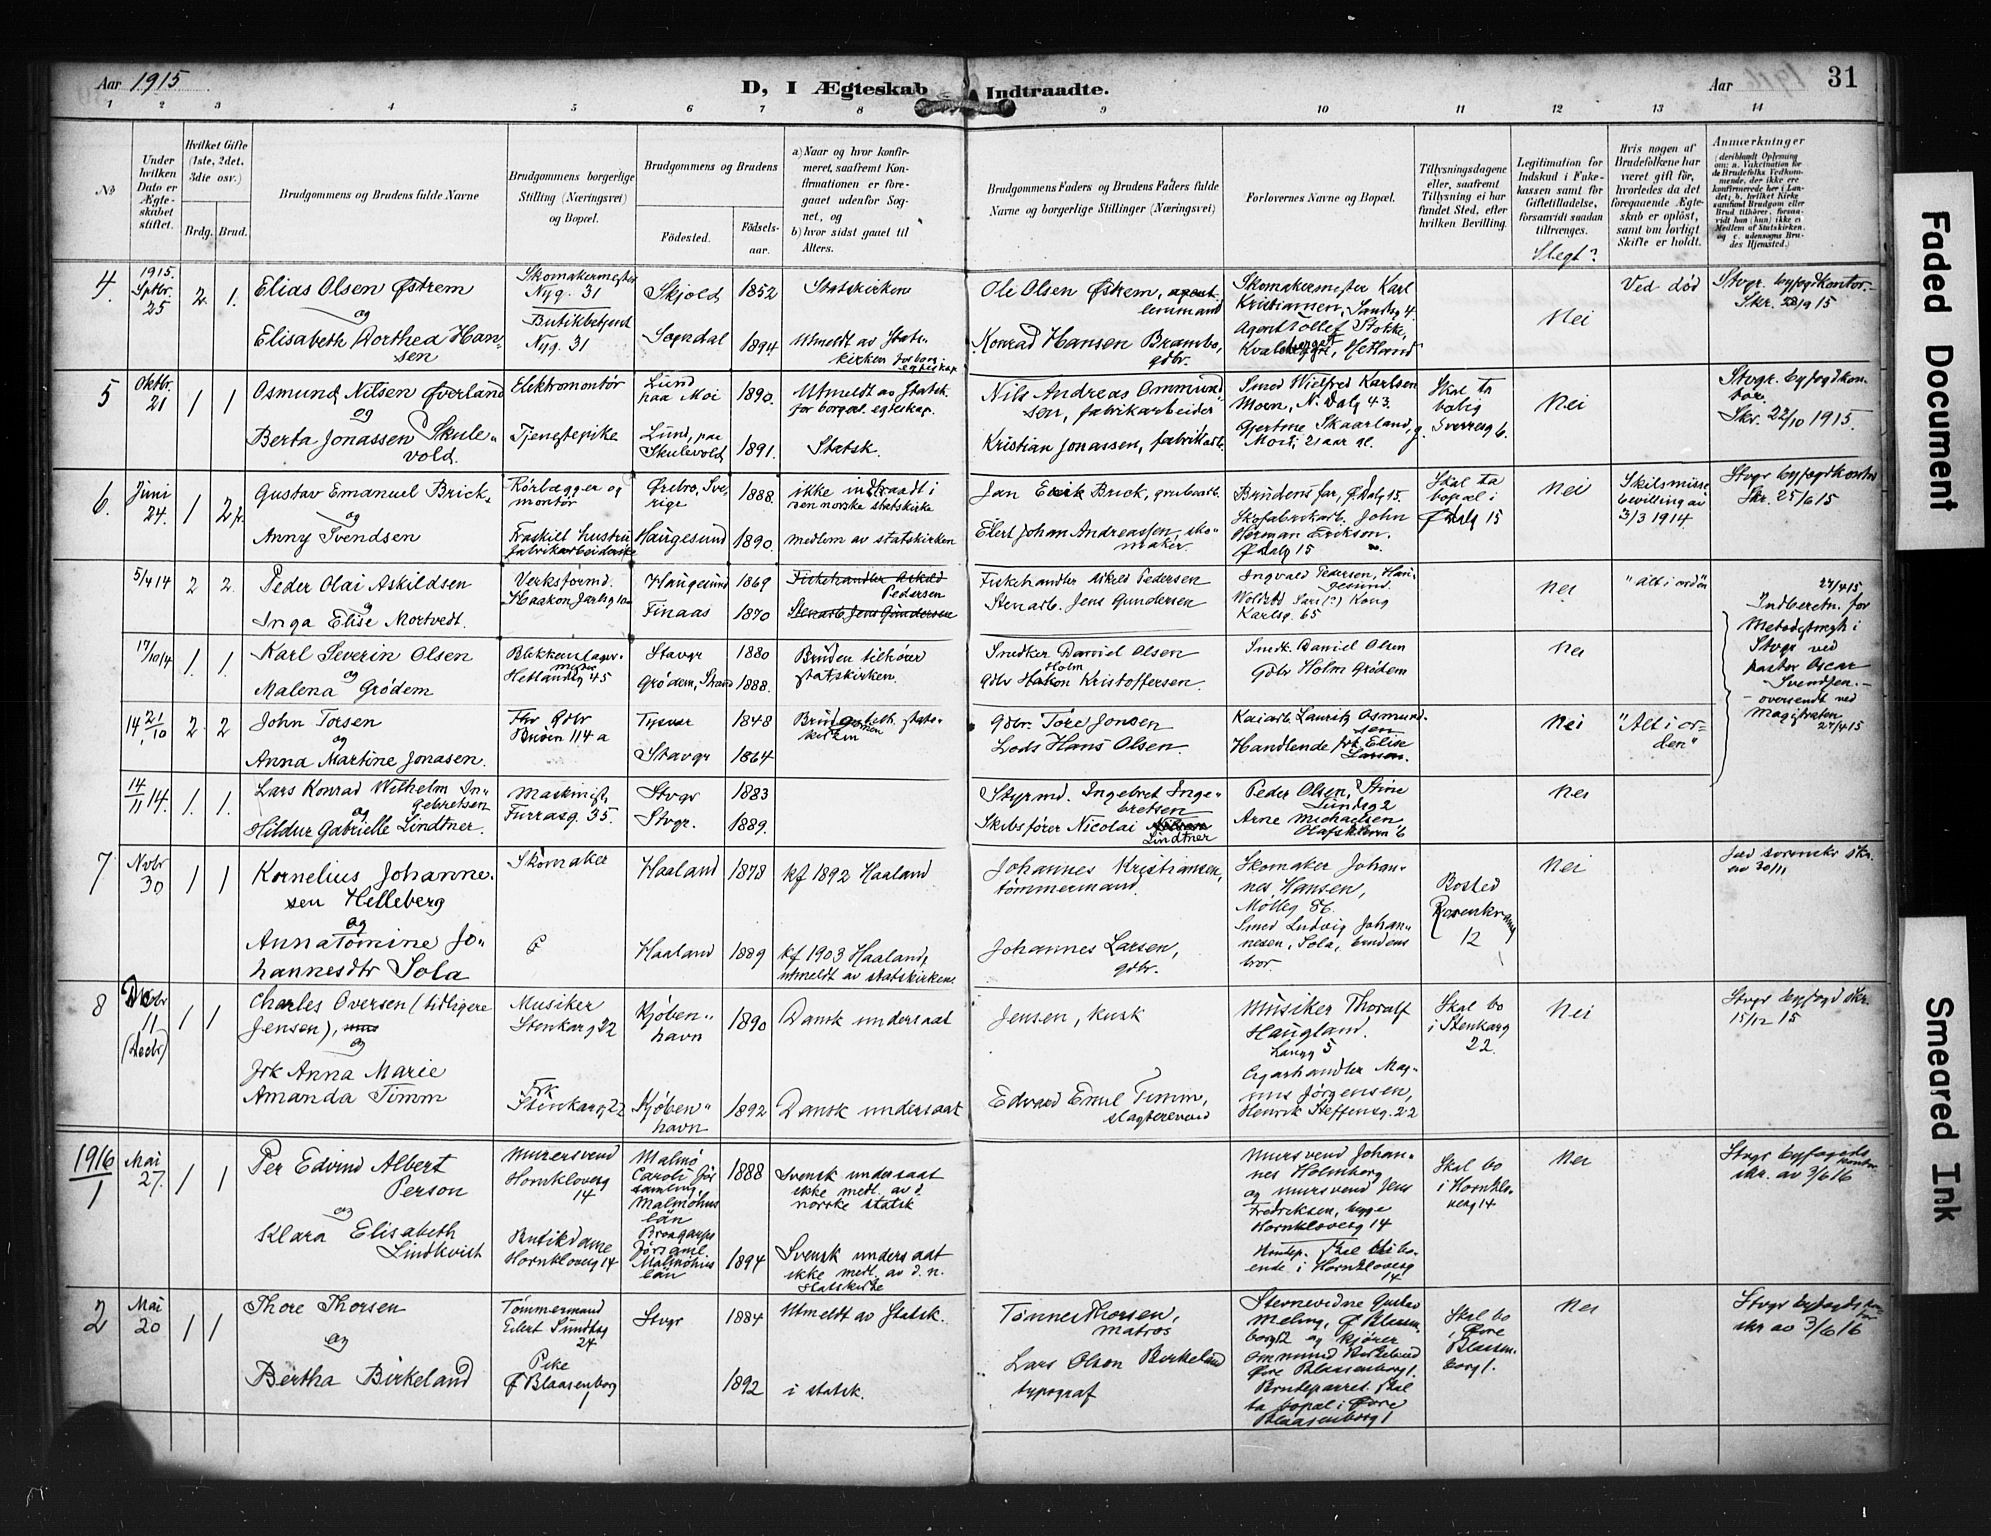 Aar 1915
D, I Ægteskab Indtraadte.
Aar
31
1 2 3 4 5 6 7 8 9 10 11 12 13 14
No
Under hvilken Dato er Ægteskabet stiftet.
Hvilket Gifte (1ste, 2det, 3die osv.)
Brdg. Brud.
Brudgommens og Brudens fulde Navne
Brudgommens borgerlige Stilling (Næringsvei) og Bopæl.
Brudgommens og Brudens
Fødested.
Fødselsaar.
a) Naar og hvor konfirmeret, saafremt Konfirmationen er foregaaet udenfor Sognet, og
b) hvor sidst gaaet til Alters.
Brudgommens Faders og Brudens Faders fulde Navne og borgerlige Stillinger (Næringsvei)
Forlovernes Navne og Bopæl.
Tillysningsdagene eller, saafremt Tillysning ei har fundet Sted, efter hvilken Bevilling.
Legitimation for Indskud i Fukekassen samt for Giftetilladelse, forsaavidt saadan tiltrænges.
Slegt?
Hvis nogen af Brudefolkene har været gift før, hvorledes da det foregaaende Ægteskab er opløst, samt om lovligt Skifte er holdt.
Anmærkninger
(deriblandt Oplysning om: a. Vakcination for de Brudefolks Vedkommende, der ikke ere konfirmerede her i Landet; b. hvilket Kirkesamfund Brudgom eller Brud tilhører, forsaavidt han (hun) ikke er Medlem af Statskirken, og c. udensogns Brudes Hjemsted.)
4. 1915. Sptbr. 25 2. 1.
Elias Olsen Østrem
og
Elisabeth Dorthea Hansen
Skomakermester Nyg. 31
Butikbetjent Nyg. 31
Skjold 1852
Sogndal 1894
Statskirken
Utmeldt av Statskirken for borg. egteskap
Ole Olsen Østrem,
Konrad Hansen Brambo, gdbr.
Skomakermester Karl Kristiansen, Sandsg 4.
Agent Tollef Stokke, Hetland
Nei
Ved død
Stvgr. byfogdkontor.
5 Oktbr. 21 1 1
Osmund Nilsen Øverland
og
Berta Jonassen Skulevold.
Elektromontør
Tjenestepike
Lund paa Moi 1890.
Lund, paa Skulevold 1891.
Utmeldt av Statsk. for borgeel. egteskap.
Statsk.
Nils Andreas Ommundsen, fabrikarbeider
Kristian Jonassen, fabrikarb.
Smed Wilfred Karlsen Moen, N. Dalg 43.
Gjertine Skaarland, Mosti, 21 aar gl.
Skal ta bolig Sverresg 6.
Nei
Stvgr. byfogdkontor.
Skr. 22/10 1915.
6. Juni 24. 1 2
Gustav Emanuel Brick
og
Anny Svendsen
Rørlægger og montør
Fraskilt hustru fabrikarbeiderske
Ørebro, Sverige 1888.
Haugesund 1890.
ikke indtraadt i den norske statskirke
medlem av statskirken
Jan Erik Brick, grubearb.
Elert Johan Andreassen, skomaker.
Brudens far, Ø Dalg 15.
Skofabrikarb. John Herman Erikson. Ø Dalg 15
Skal ta bopæl i Ø Dalg 15
Nei
Skilsmissebevilling av 3/3 1914
Stvgr byfogdkontor
Skr. 25/6 15
5/4 14 2 2.
Peder Olai Askildsen
og
Inga Elise Mortvedt.
Verksformd. Haakon Jarlsg 10
Haugesund 1869
Finaas 1870
Fiskehandler Askild Pedersen
Stenarb. Jens Gundersen
Fiskehandler Askild Pedersen
Stenarb. Jens Gundersen
Ingvald Pedersen, Haugesund.
Kong Karlsg. 65
Nei
"Alt i orden"
27/4 15
Indberetn. for Metodistmgh i Stvgr ved pastor Oscar Svendsen. — oversendt ved Magistraten 27/4 15
17/10 14 1. 1.
Karl Severin Olsen
og
Malena Grødem
Blikkenslagermester Hetlandsg 45
Stavgr 1880
Grødem, Strand 1888.
Bruden tilhører statskirken.
Snedker Daniel Olsen
Gdbr Holm Kristoffersen.
Snedk. Daniel Olsen
Gdbr Holm Grødem
Nei
14 21/10 2. 2
John Torsen
og
Anna Martine Jonasen.
Fhv Gdbr Buøen 114 a
Tysvær 1848
Stavgr 1864
Gdbr. Tore Jonsen
Lods Hans Olsen.
Kaiarb Lauritz Osmundsen
Handlende frk Elise Larsen.
Nei
"Alt i orden"
14/11 14. 1. 1.
Lars Konrad Wilhelm Ingebretsen
og
Hildur Gabrielle Lindtner.
Maskinist, Furrasg. 35.
Stvgr 1883
Stvgr. 1889.
Styrmd. Ingebret Ingebretsen
Skibsfører Nicolai Lindtner
Peder Olsen, Stine Sundsg 2
Arne Michaelsen Olafskleven 6
Nei
7 Nvbr 30 1 1
Kornelius Johannesen Helleberg
og
Anna Tomine Johannesdtr Sola
Skomaker
Haaland 1878
Haaland 1889
kf 1892 Haaland
kf 1903 Haaland, utmeldt av statskirken.
Johannes Kristiansen, tømmermand.
Johannes Larsen, gdbr.
Skomaker Johannes Hansen, Mølleg 86.
Smed Ludvig Johannesen, Sola, brudens bror.
Bosted Rosenkransg 12
Nei
8 11 (Decbr) 1 1
Charles Oversen (tidligere Jensen),
og
Frk Anna Marie Amanda Timm
Musiker Stenkarg 22
Frk Stenkarg 22
Kjøbenhavn 1890
Kjøbenhavn 1892
Dansk undersaat
Dansk undersaat
Jensen, kusk
Edvard Emil Timm, slagtersvend
Musiker Thoralf Haugland. Langg 5
Cigarhandler Magnus Jørgensen, Henrik Steffensg. 22
Skal bo i Stenkarg 22.
Nei
Stvgr byfogd skr. 15/12 15
1916
1 Mai 27. 1 1
Per Edvind Albert Person
og
Klara Elisabeth Lindkvist
Murersvend Hornklovesg 14
Butikdame Hornklovesg 14
Malmø Caroli församling Malmöhus län 1888
Församl. Malmöhus län 1894
Svensk undersaat ikke medl. av d. norske statsk
Svensk undersaat ikke medl. av d. n. statskirke
Mursvend Johannes Holmberg og mursvend Jens Fredriksen, begge Hornklovesg 14
Skal bo i Hornklovesg 14
Nei
Stvgr byfogds kontor skr. av 3/6 16
2 Mai 20 1 1
Thore Thorsen
og
Bertha Birkeland
Tømmermand Eilert Sundtsg 24
Pike Ø Blaasenborg
Stvgr 1884
1892
Utmeldt av Statsk.
i statsk.
Tønnes Thorsen, matros
Lars Olsen Birkeland typograf
Stevnevidne Gustav Meling, Ø Blaasenborg 12 og kjører Ommund Birkeland Øvre Blaasenborg 1. Brudeparret skal ta bopæl i Øvre Blaasenborg 1
Skal bo i Øvre Blaasenborg 1.
Nei
Stvgr byfogds kontor skr av 3/6 16
Faded Document
Smeared Ink